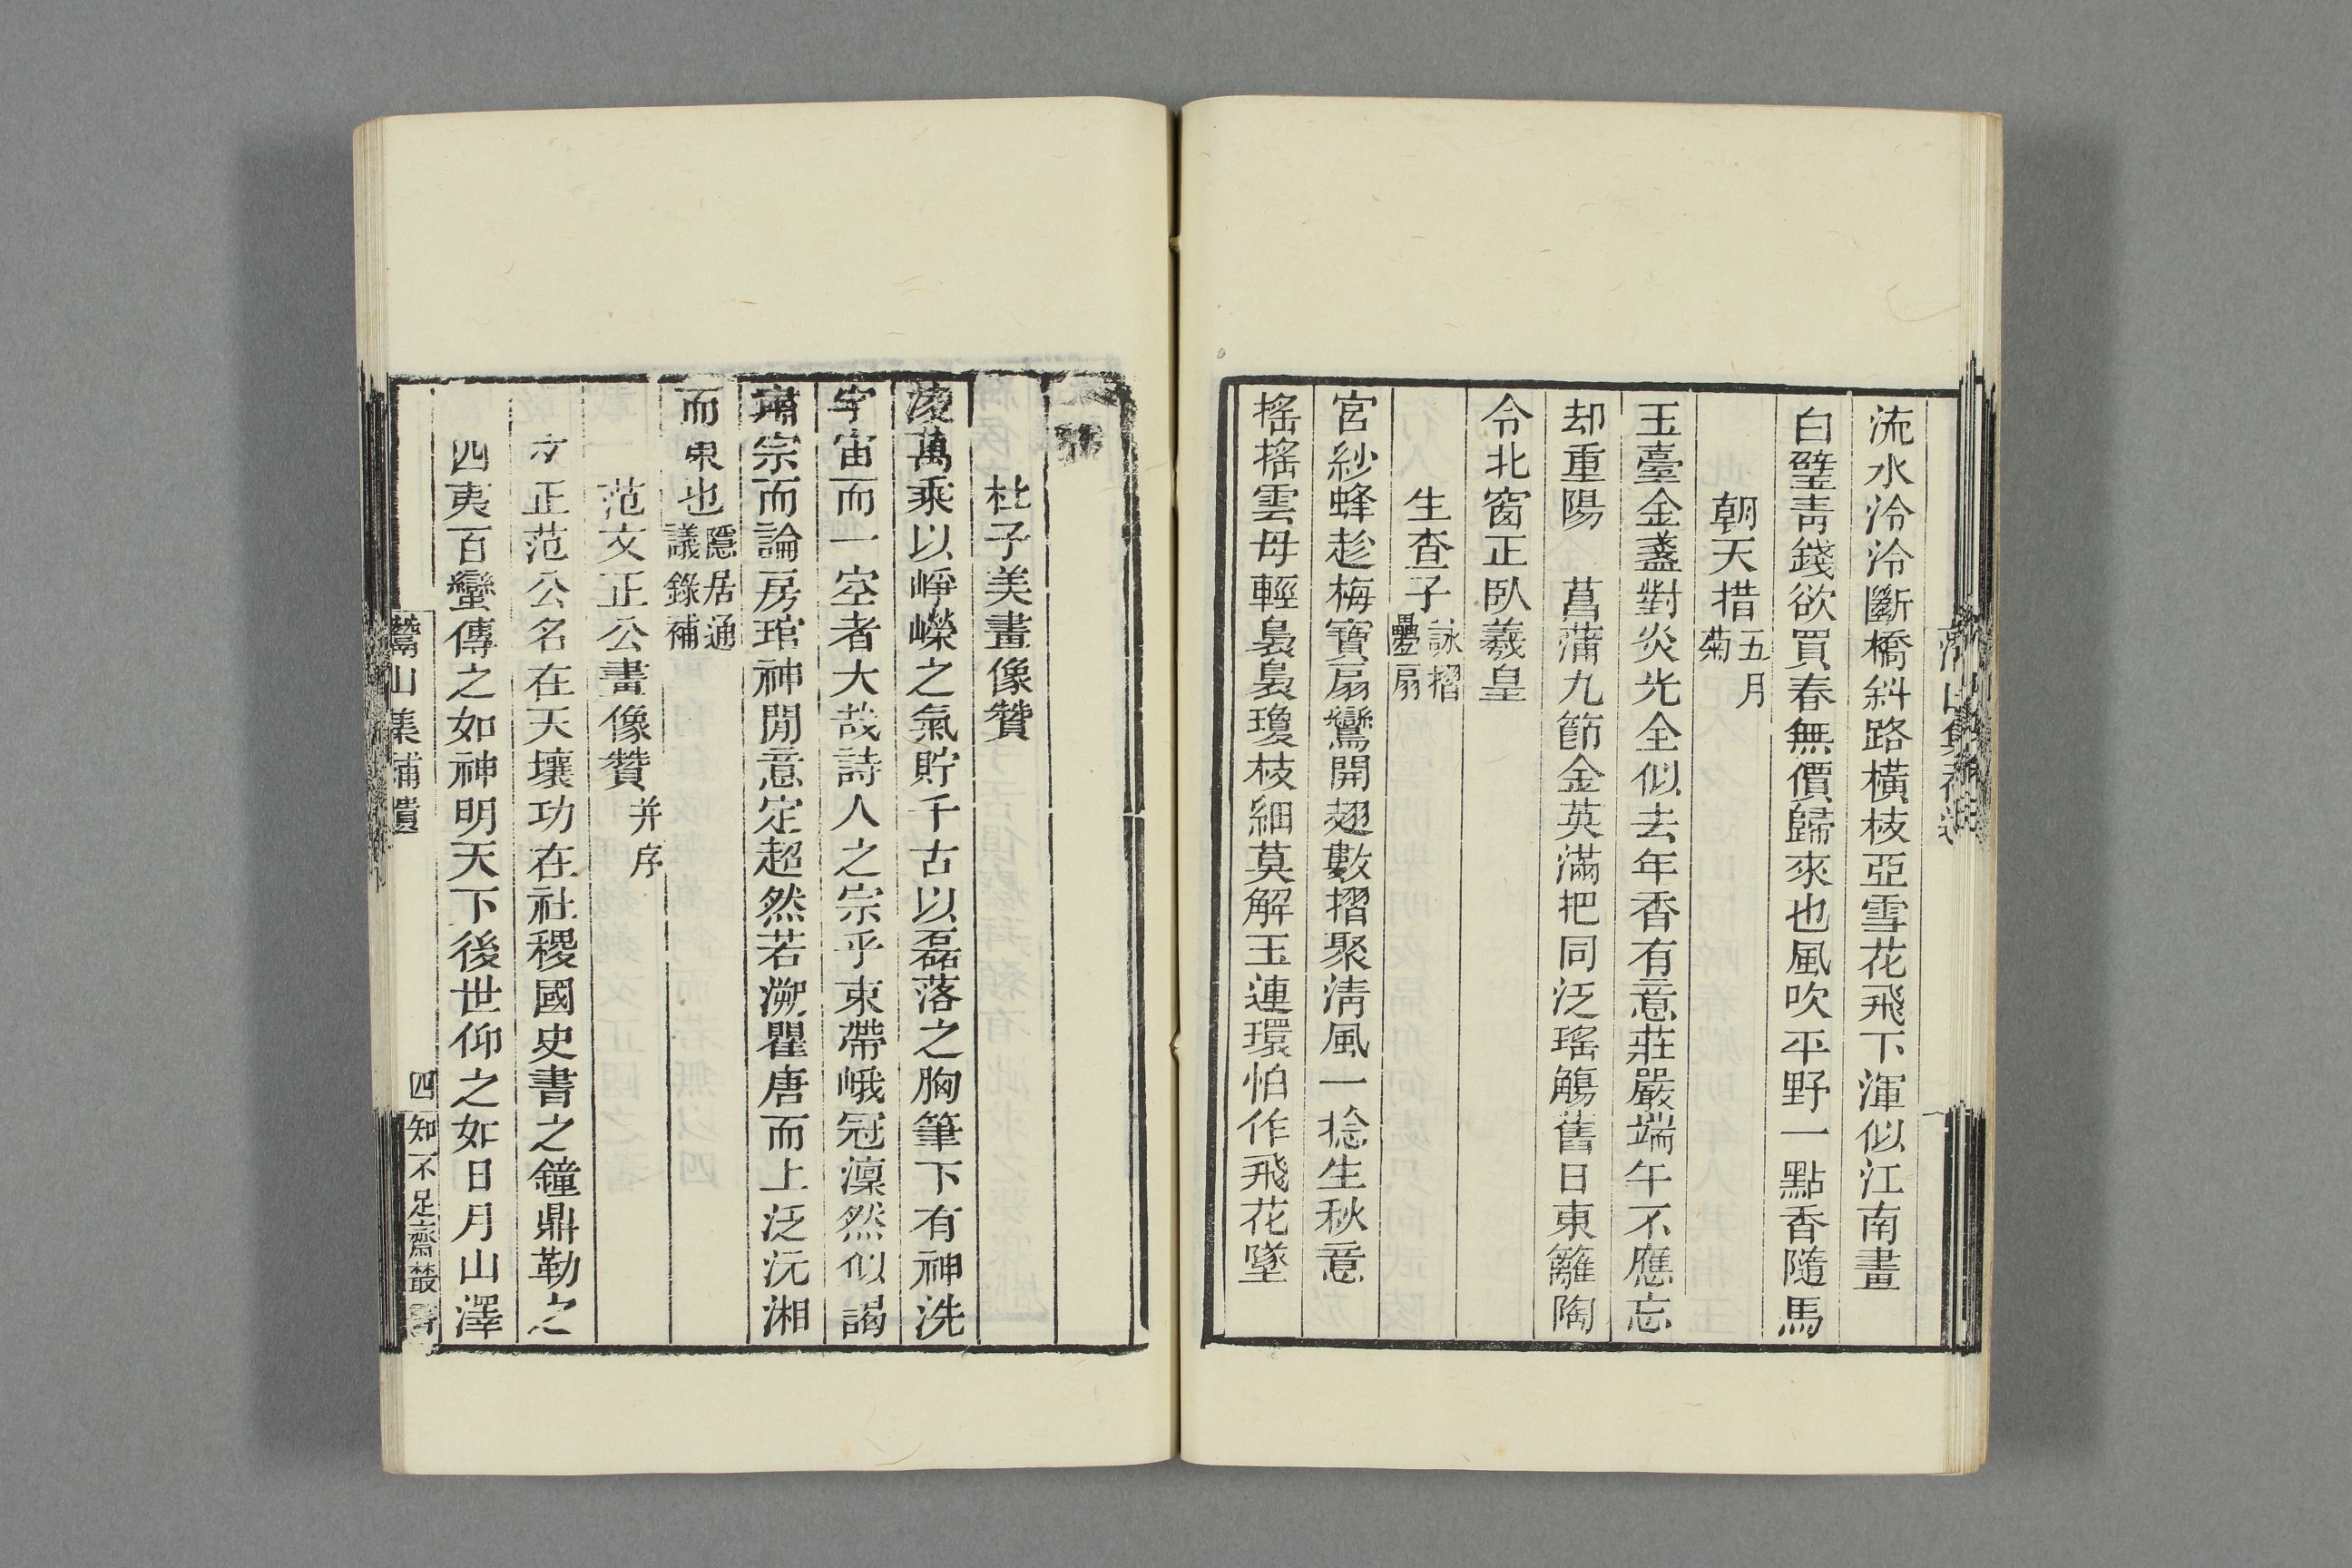 流水泠泠斷橋斜路橫枝亞雪花飛下渾似江南畫
白璧靑錢欲買春無價歸來也風吹平野一點香隨馬
朝天措五月菊
玉臺金盞對炎光全似去年香有意莊嚴端午不應忘
却重陽 菖蒲九節金英滿把同泛瑤觴舊日東籬陶
令北窗正臥羲皇
生查子詠摺疊扇
宮紗蜂趁梅寶扇鸞開翅數摺聚淸風一捻生秋意
搖搖雲母輕裊裊瓊枝細莫解玉連環怕作飛花墜
杜子美畫像贊
淩萬乘以崢嶸之氣貯千古以磊落之胸筆下有神洗
宇宙而一空者大哉詩人之宗乎束帶峨冠凛然似謁
肅宗而論房琯神閒意定超然若泝瞿唐而上泛沅湘
而東也隱居通議錄補
范文正公畫像贊并序
文正范公名在天壤功在社稷國史書之鐘鼎勒之
四夷百蠻傳之如神明天下後世仰之如日月山澤
鷩山集補遺
四
知不足齋叢書